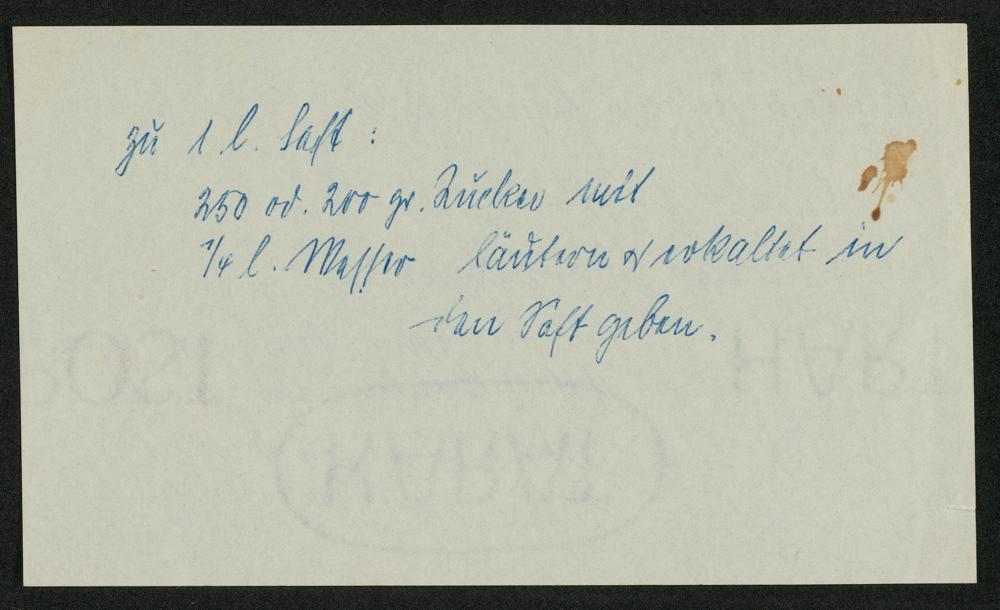 zu 1 l. Saft :
250 od. 200 gr. Zucker mit
1/4 l. Wasser läutern & erkaltet in
den Saft geben.